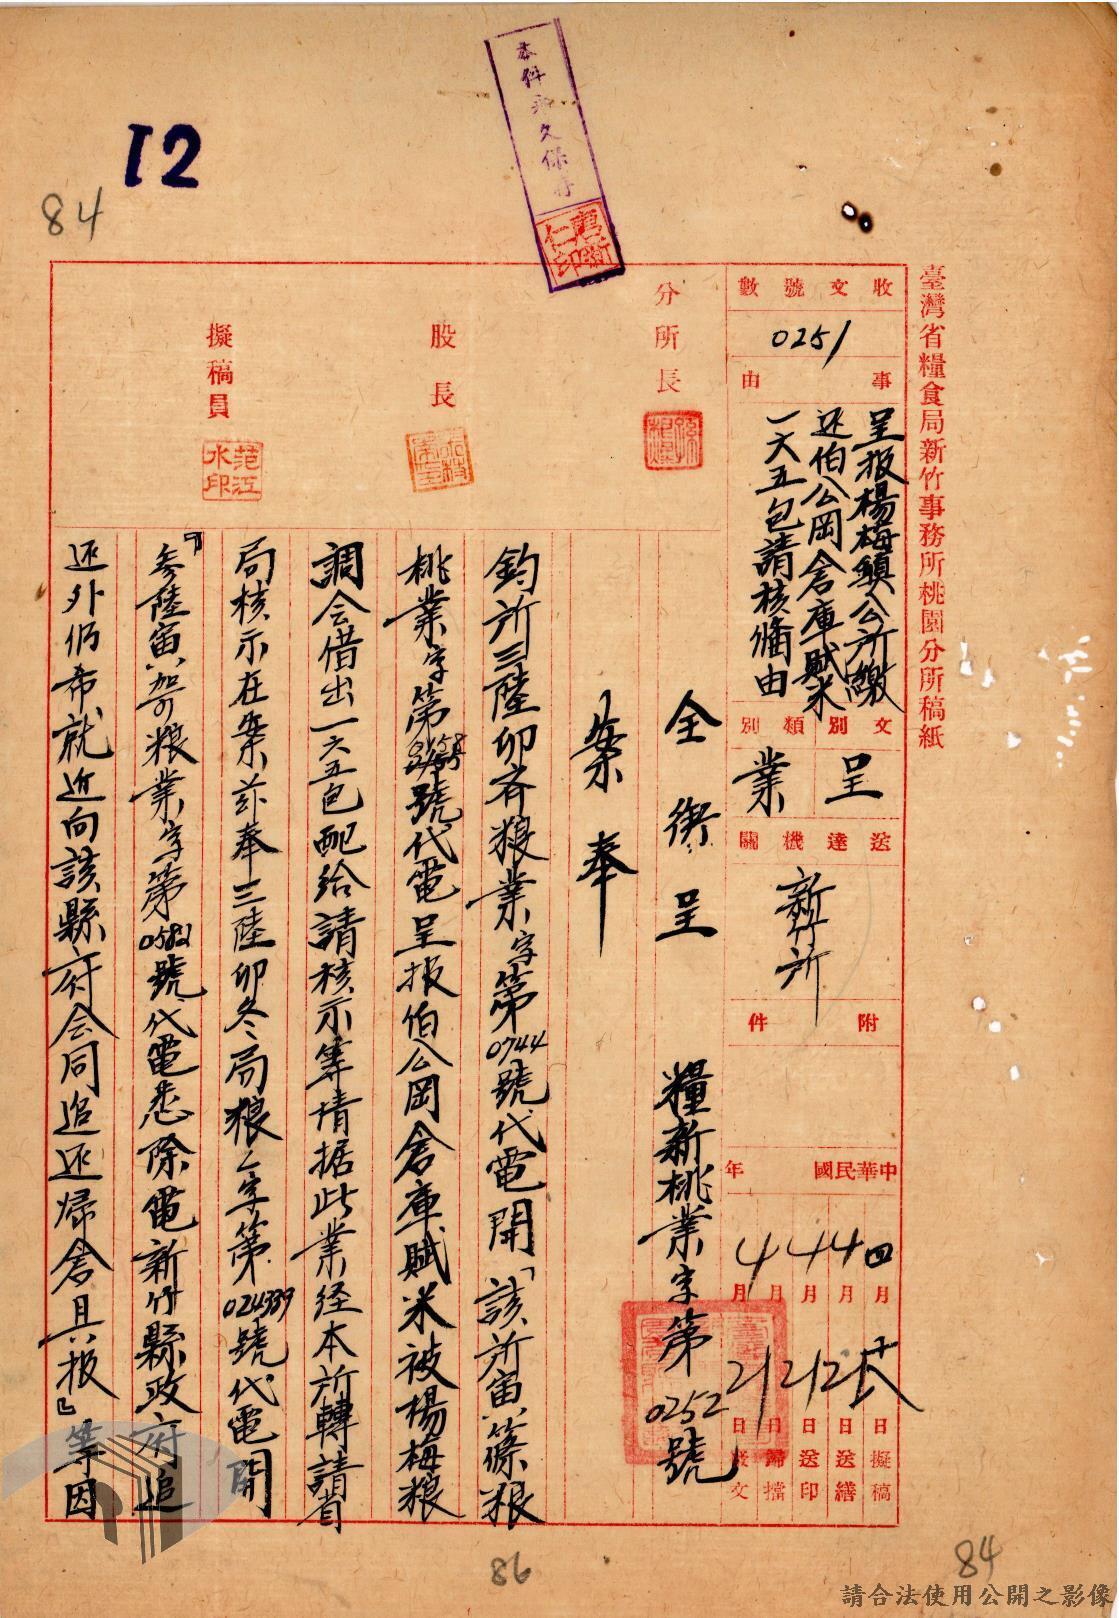 12
84
本件永久保存
臺灣省糧食局新竹事務所桃園分所稿紙
收文號數
0251
事由
呈报楊梅鎮公所繳
还伯公岡倉庫賦米
一六五包請核備由
文別
呈
類別
業
送達機關
新竹所
附件
中華民國 年
四月 日擬稿
4月21日送繕
4月21日送印
4月21日歸檔
4月21日發文
分所長
股長
擬稿員
范江水印
全銜呈 糧新桃業字第0252號
案奉
鈞所三陸卯齐粮業字第0744號代電開「該所宙篠粮
桃業字第 號代電呈报伯公岡倉庫賦米被楊梅粮
調会借出一六五包配给請核示等情据此業经本所轉請省
局核示在案茲奉三陸卯冬局粮 字第024339號代電開
『参陸宙 粮業字第0582號代電悉除電新竹縣政府追
还外仍希就近向該縣府会同追还歸倉具报』等因
86
84
請合法使用公開之影像